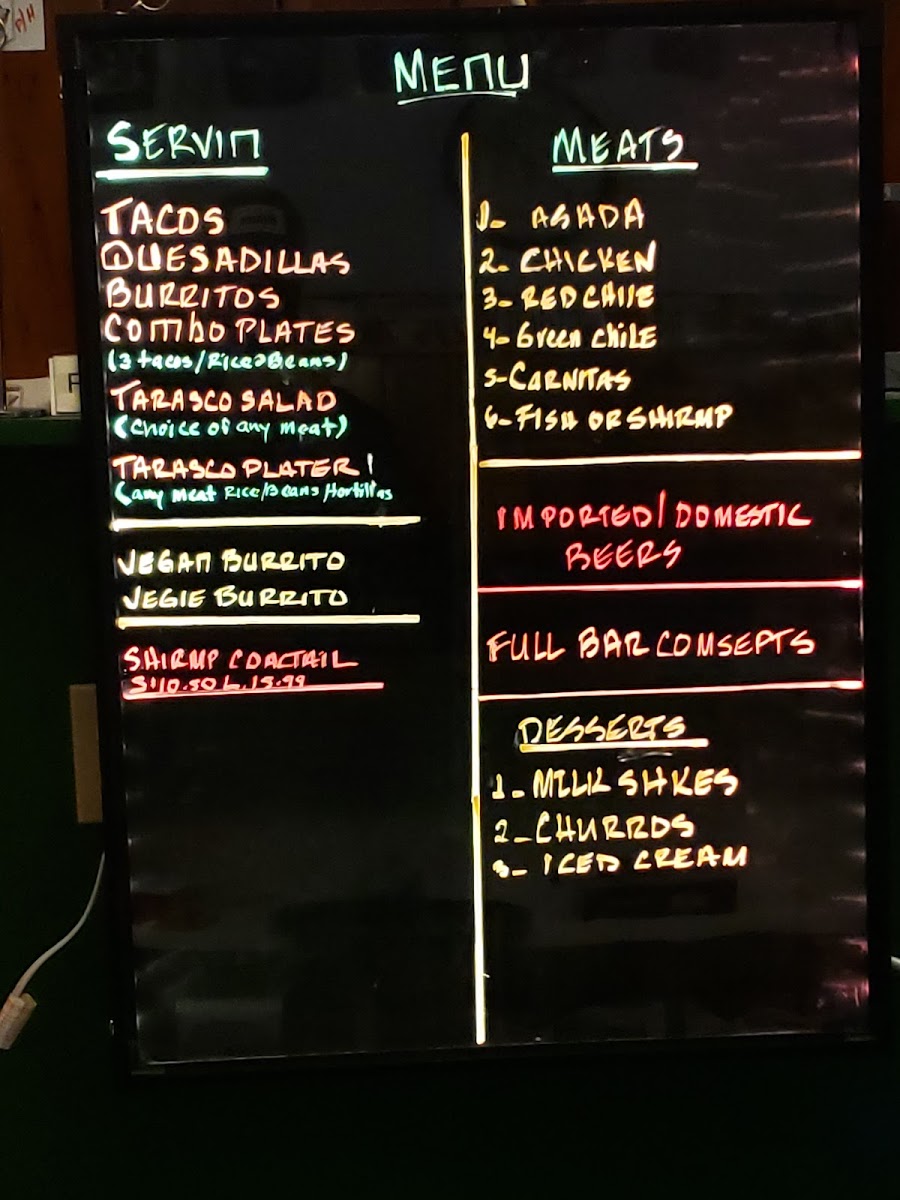 MENU
SERVIN
TACOS
QUESADILLAS
BURRITOS
COMBO PLATES
(3 tacos/Rice&Beans)
TARASCO SALAD
(choice of any meat)
TARASCO PLATER!
(any meat Rice/Beans/tortillas
VEGAN BURRITO
VEGIE BURRITO
SHIRMP COACTAIL
S$10.50 L.15.99
MEATS
1- ASADA
2- CHICKEN
3- RED CHILE
4- Green CHILE
5- CARNITAS
6- FISH OR SHIRMP
IMPORTED/DOMESTIC
BEERS
FULL BAR COMSEPTS
DESSERTS
1- MILK SHKES
2- CHURROS
3- ICED CREAM